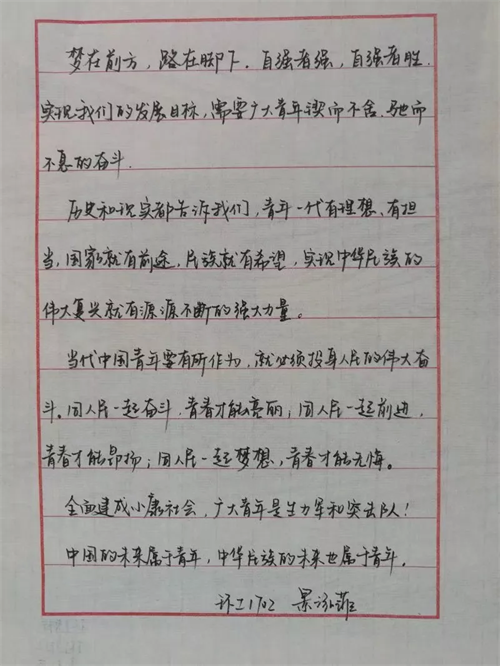 梦在前方，路在脚下．自强者强，自强者胜．
实现我们的发展目标，需要广大青年锲而不舍．驰而
不息的奋斗．
历史和现实都告诉我们，青年一代有理想、有担
当，国家就有前途，民族就有希望，实现中华民族的
伟大复兴就有源源不断的强大力量。
当代中国青年要有所作为，就必须投身人民的伟大奋
斗．同人民一起奋斗，青春才能亮丽；同人民一起前进，
青春才能昂扬；同人民一起梦想，青春才能无悔。
全面建成小康社会，广大青年是生力军和突击队！
中国的未来属于青年，中华民族的未来也属于青年．
环工1702 景